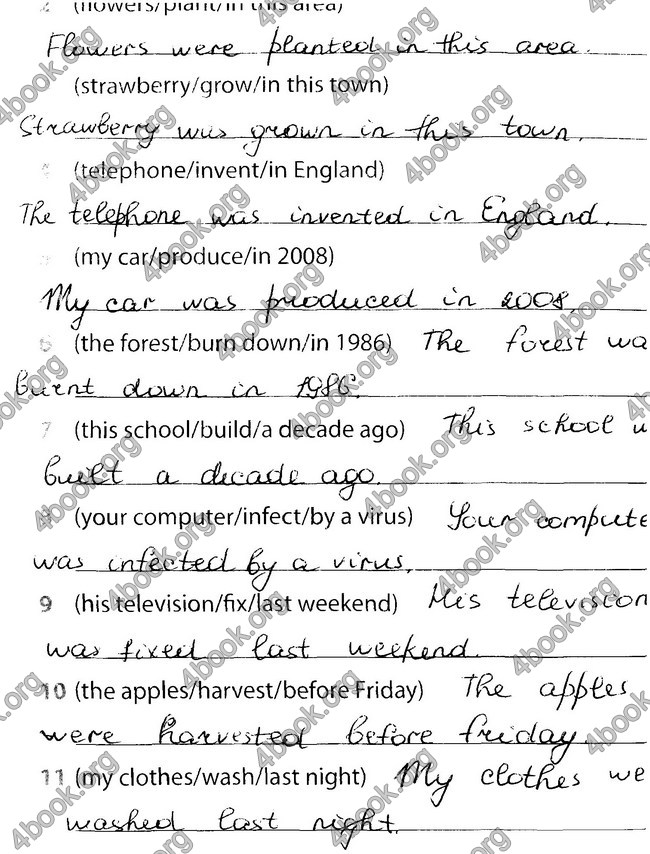 2 (flowers/plant/in this area)
Flowers were planted in this area.
(strawberry/grow/in this town)
Strawberry was grown in this town.
(telephone/invent/in England)
The telephone was invented in England.
(my car/produce/in 2008)
My car was produced in 2008.
6 (the forest/burn down/in 1986) The forest wa
burnt down in 1986.
7 (this school/build/a decade ago) This school w
built a decade ago.
(your computer/infect/by a virus) Your compute
was infected by a virus.
9 (his television/fix/last weekend) His television
was fixed last weekend.
10 (the apples/harvest/before Friday) The apples
were harvested before friday.
11 (my clothes/wash/last night) My clothes we
washed last night.
4book.org